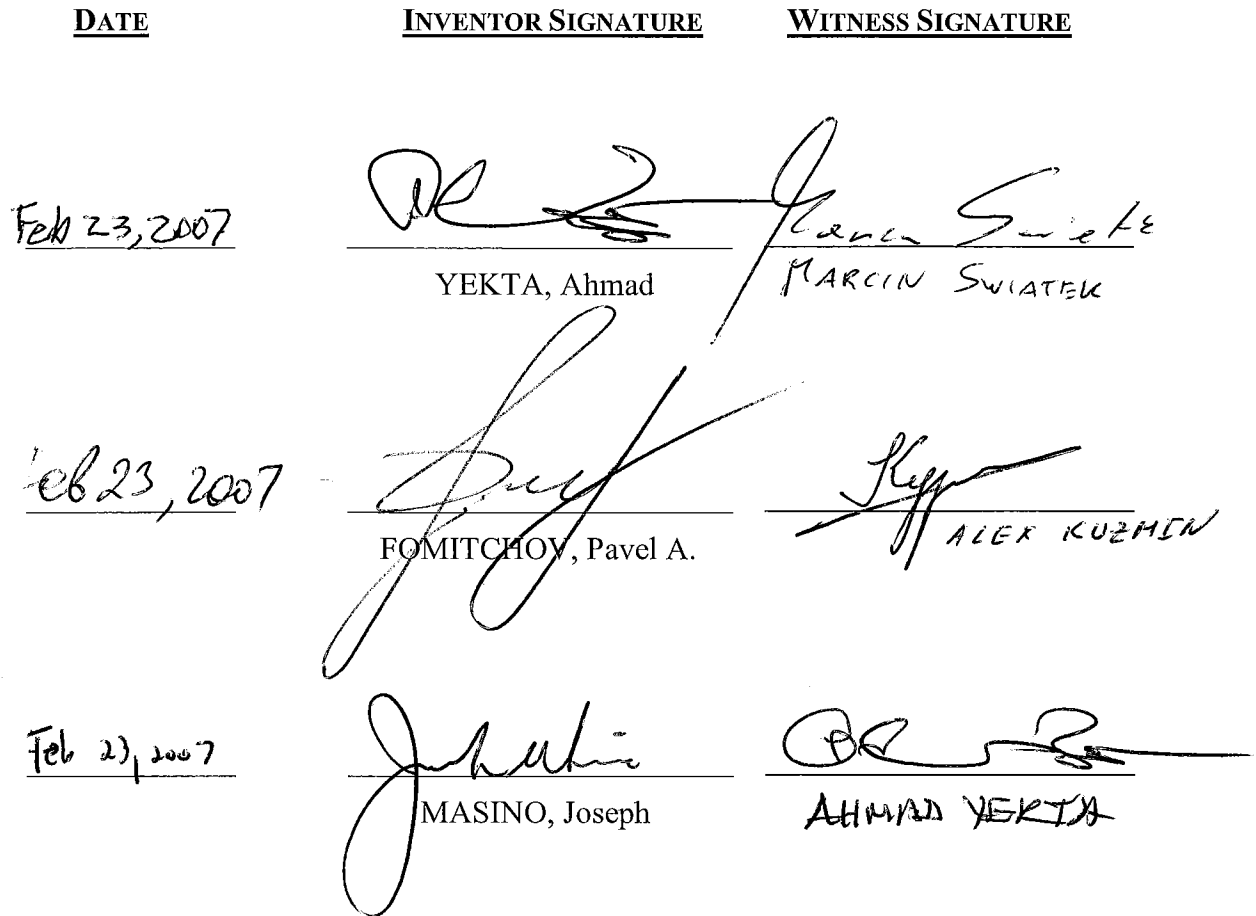 DATE INVENTOR SIGNATURE WITNESS SIGNATURE
Feb 23, 2007
YEKTA, Ahmad MARCIN SWIATEK
eb 23, 2007
FOMITCHOV, Pavel A. ALEX KUZMIN
Feb 23, 2007
MASINO, Joseph AHMAD YEKTA